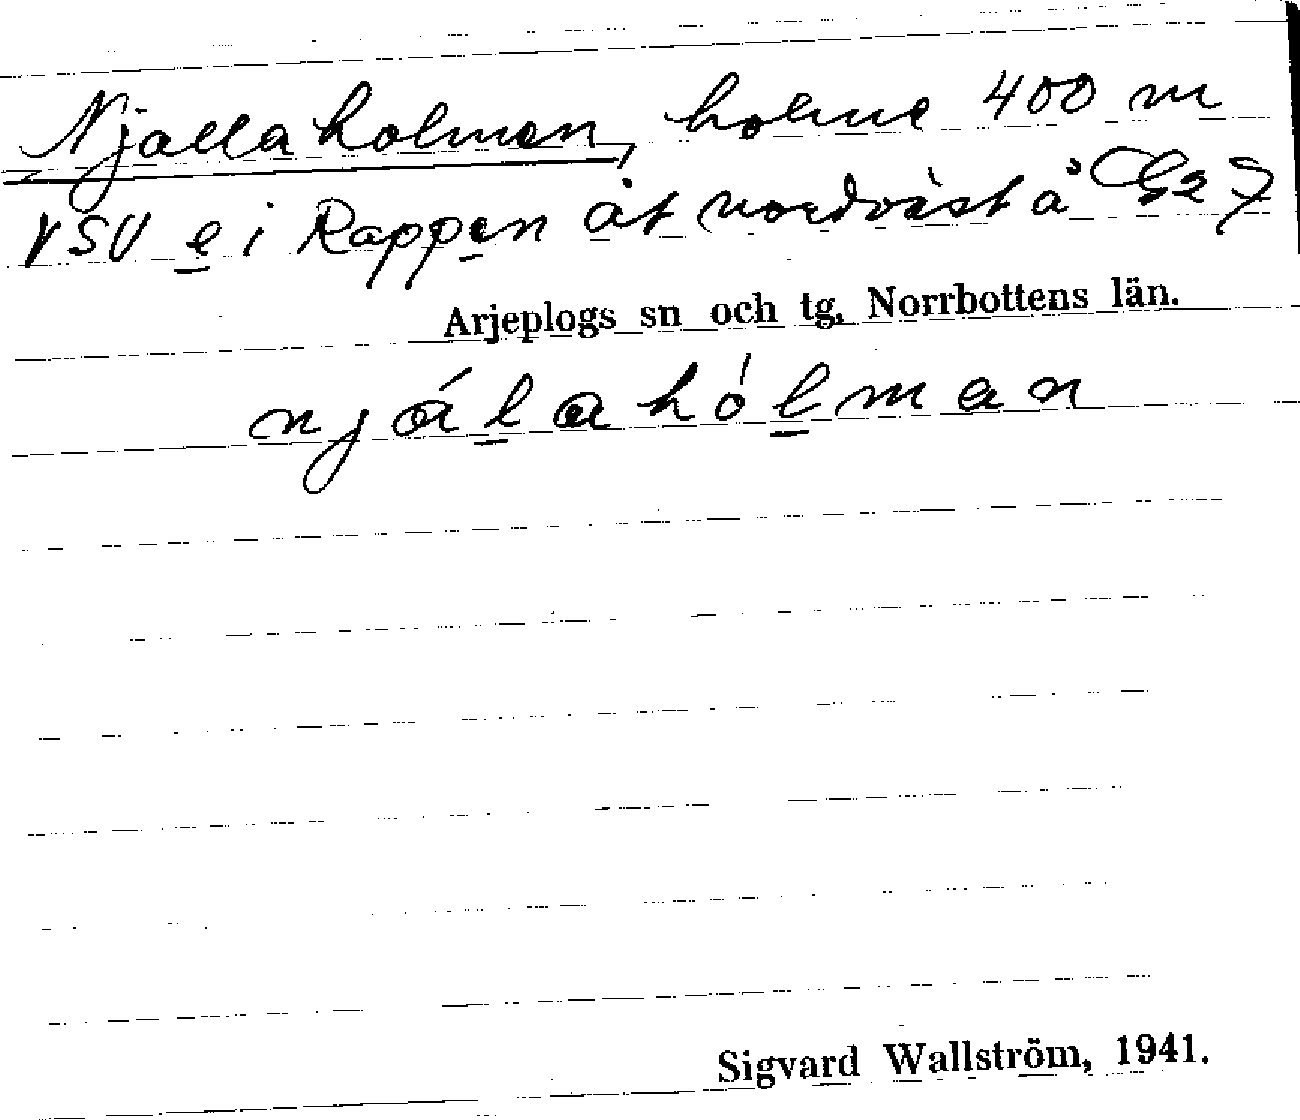 Njallaholmen, holme 400 m
VSV e i Rappen åt nordväst å G27
Arjeplogs sn och tg, Norrbottens län.
njálahólman
Sigvard Wallström, 1941.